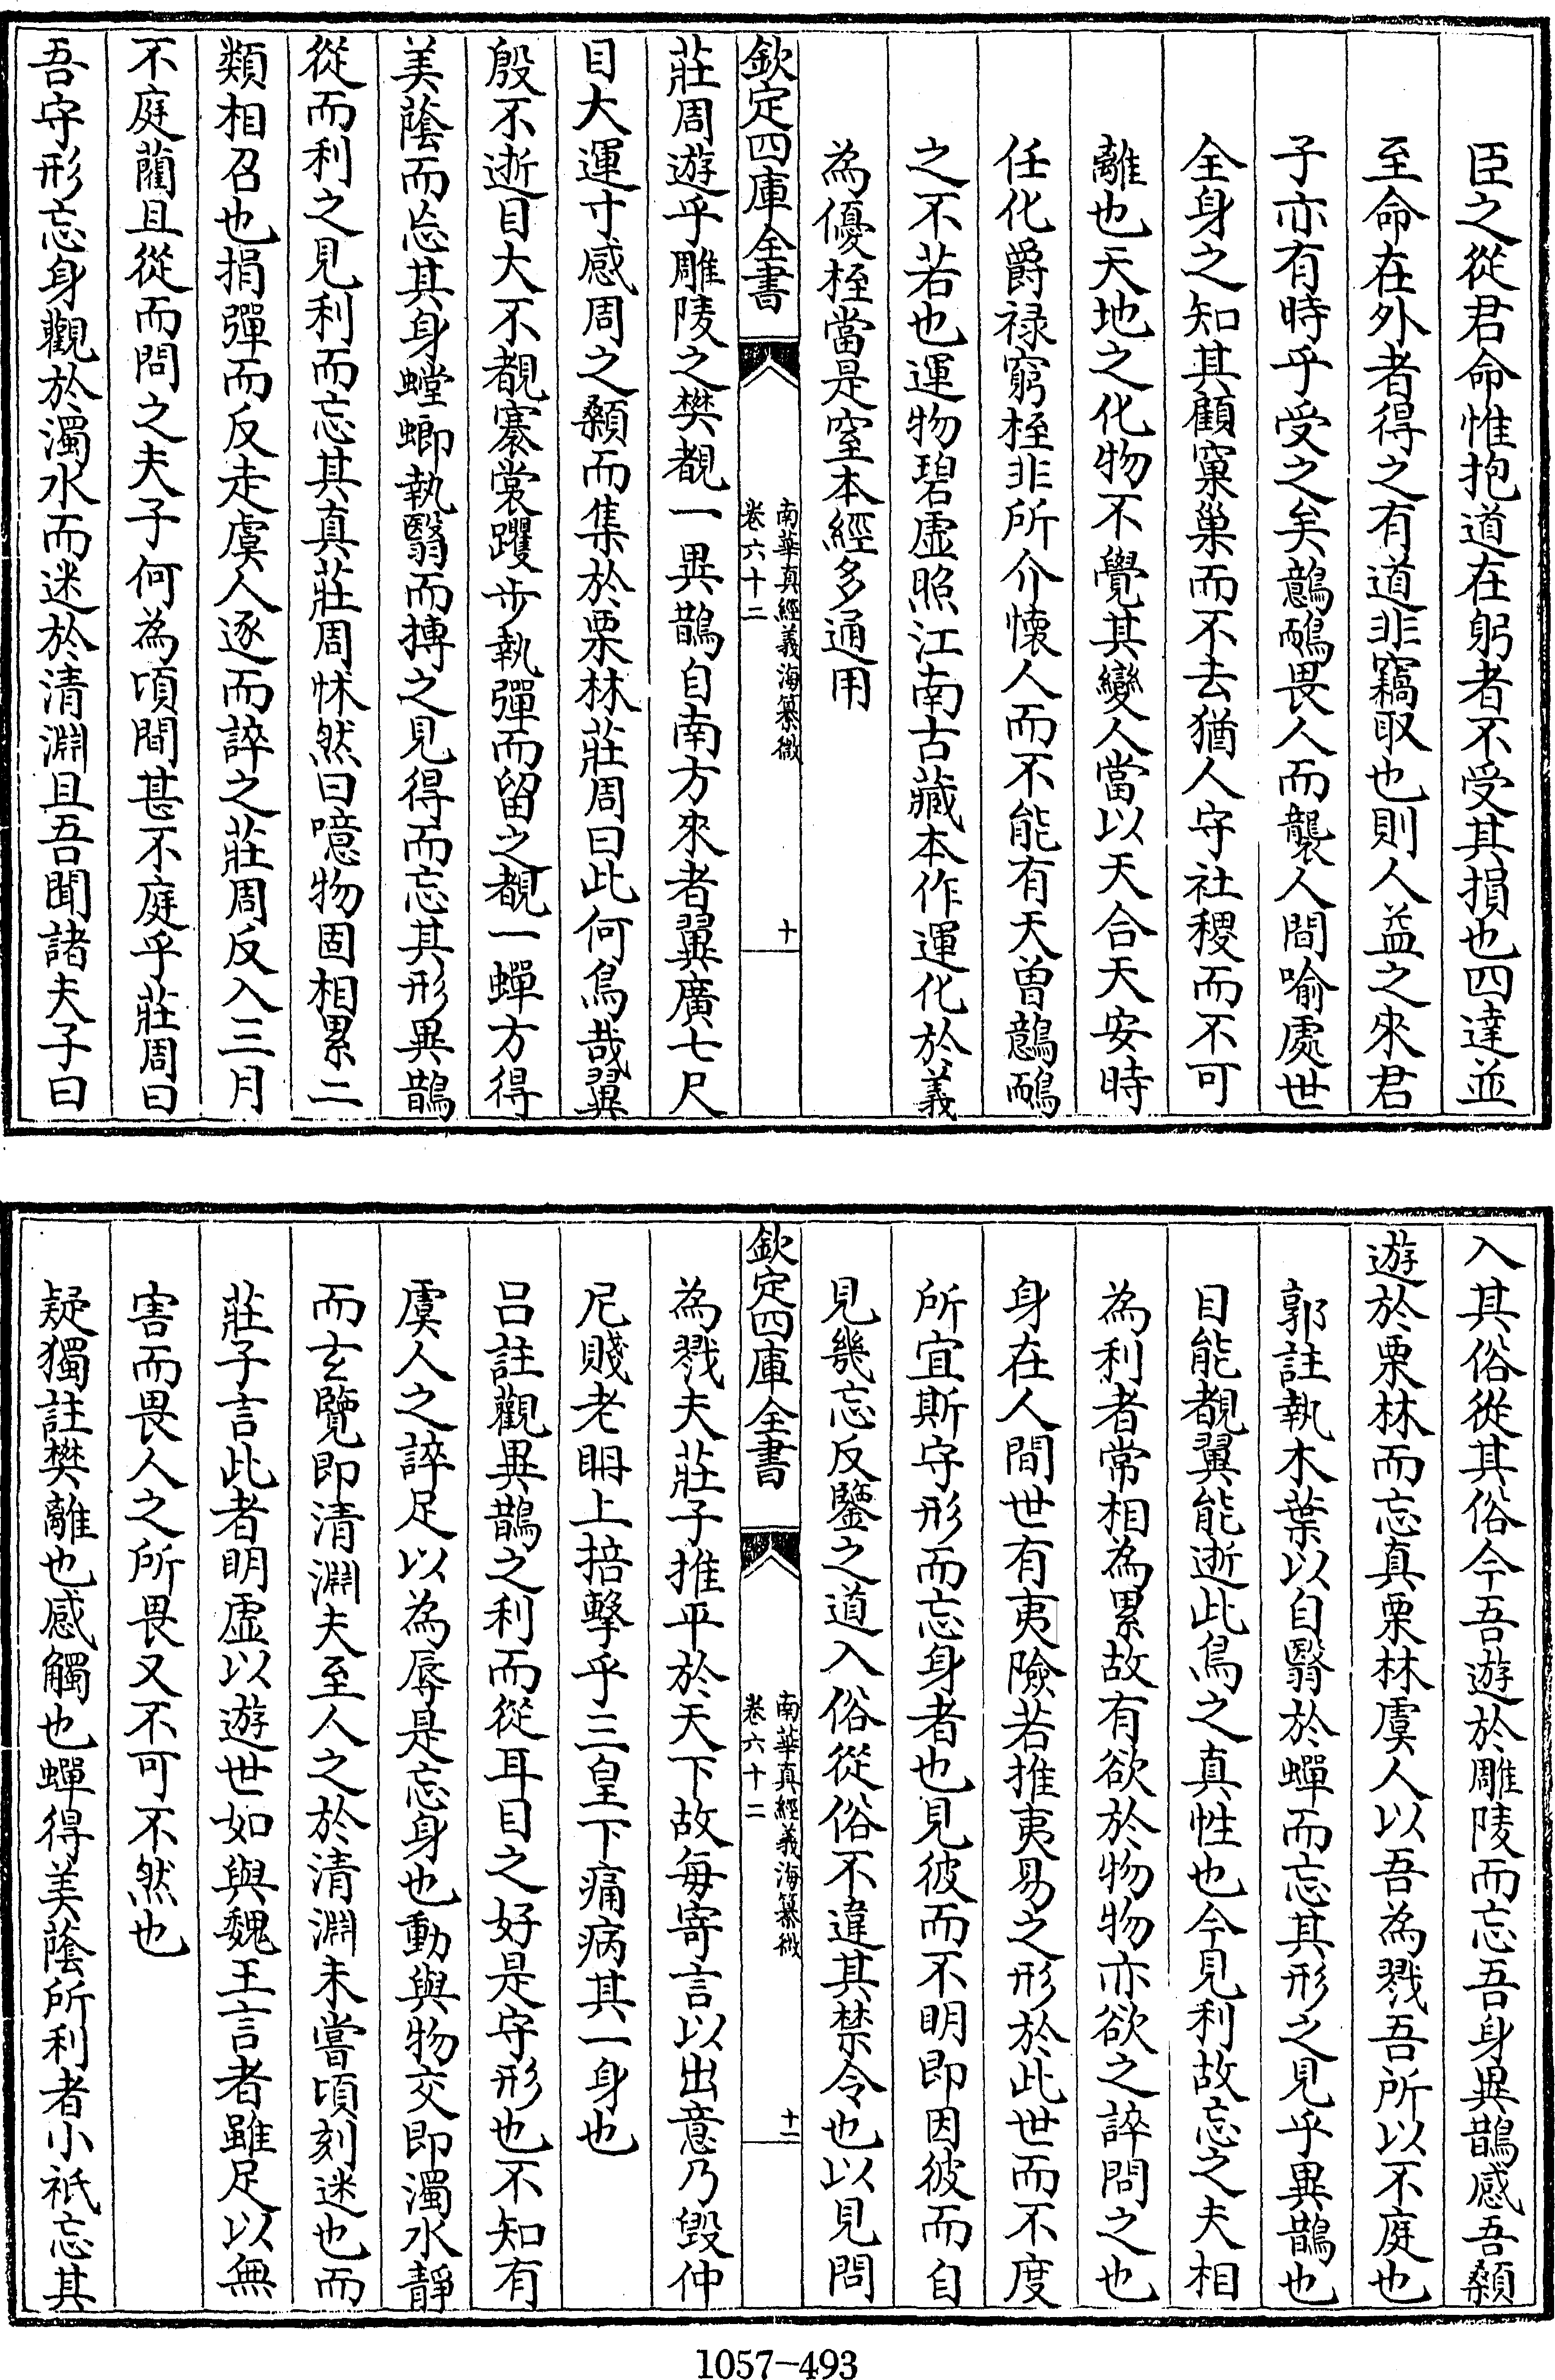 臣之從君命惟抱道在躬者不受其損也四達並
至命在外者得之有道非竊取也則人益之來君
子亦有時乎受之矣鷾鴯畏人而襲人間喻處世
全身之知其顧窠巢而不去猶人守社稷而不可
離也天地之化物不覺其變人當以天合天安時
任化爵禄窮桎非所介懷人而不能有天曽鷾鴯
之不若也運物碧虛照江南古藏本作運化於義
為優桎當是窒本經多通用
欽定四庫全書
南華真經義海纂微
卷六十二
十
莊周遊乎雕陵之樊覩一異鵲自南方來者翼廣七尺
目大運寸感周之顙而集於栗林莊周曰此何鳥哉翼
殷不逝目大不覩褰裳躩步執彈而留之覩一蟬方得
美蔭而忘其身螳蜋執翳而搏之見得而忘其形異鵲
從而利之見利而忘其真莊周怵然曰噫物固相累二
類相召也捐彈而反走虞人逐而誶之莊周反入三月
不庭藺且從而問之夫子何為頃間甚不庭乎莊周曰
吾守形忘身觀於濁水而迷於清淵且吾聞諸夫子曰
入其俗從其俗今吾遊於雕陵而忘吾身異鵲感吾顙
遊於栗林而忘真栗林虞人以吾為戮吾所以不庭也
郭註執木葉以自翳於蟬而忘其形之見乎異鵲也
目能覩翼能逝此鳥之真性也今見利故忘之夫相
為利者常相為累故有欲於物物亦欲之誶問之也
身在人間世有夷險若推夷易之形於此世而不度
所宜斯守形而忘身者也見彼而不明即因彼而自
見幾忘反鑒之道入俗從俗不違其禁令也以見問
欽定四庫全書
南華真經義海纂微
卷六十二
十一
為戮夫莊子推平於天下故每寄言以出意乃毀仲
尼賤老明上掊擊乎三皇下痛病其一身也
吕註觀異鵲之利而從耳目之好是守形也不知有
虞人之誶足以為辱是忘身也動與物交即濁水靜
而玄覽即清淵夫至人之於清淵未嘗頃刻迷也而
莊子言此者明虛以遊世如與魏王言者雖足以無
害而畏人之所畏又不可不然也
疑獨註樊離也感觸也蟬得美蔭所利者小祇忘其
1057-493